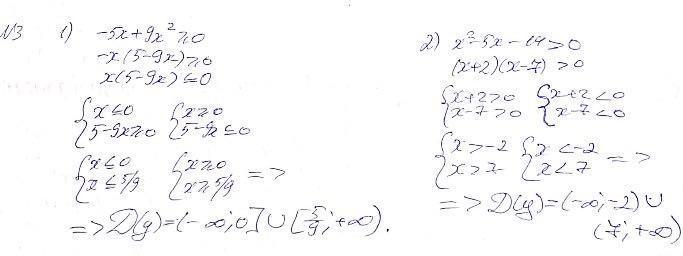 N3 1) -5x+9x² ≥ 0
-x(5-9x) ≥ 0
x(5-9x) ≤ 0
{x ≤ 0 {x ≥ 0
{5-9x ≥ 0 {5-9x ≤ 0
{x ≤ 0 {x ≥ 0
{x ≤ 5/9 {x ≥ 5/9 =>
=> D(y) = (-∞; 0] ∪ [5/9; +∞).
2) x²-5x-14 > 0
(x+2)(x-7) > 0
{x+2 > 0 {x+2 < 0
{x-7 > 0 {x-7 < 0
{x > -2 {x < -2
{x > 7 {x < 7 =>
=> D(y) = (-∞; -2) ∪
(7; +∞)